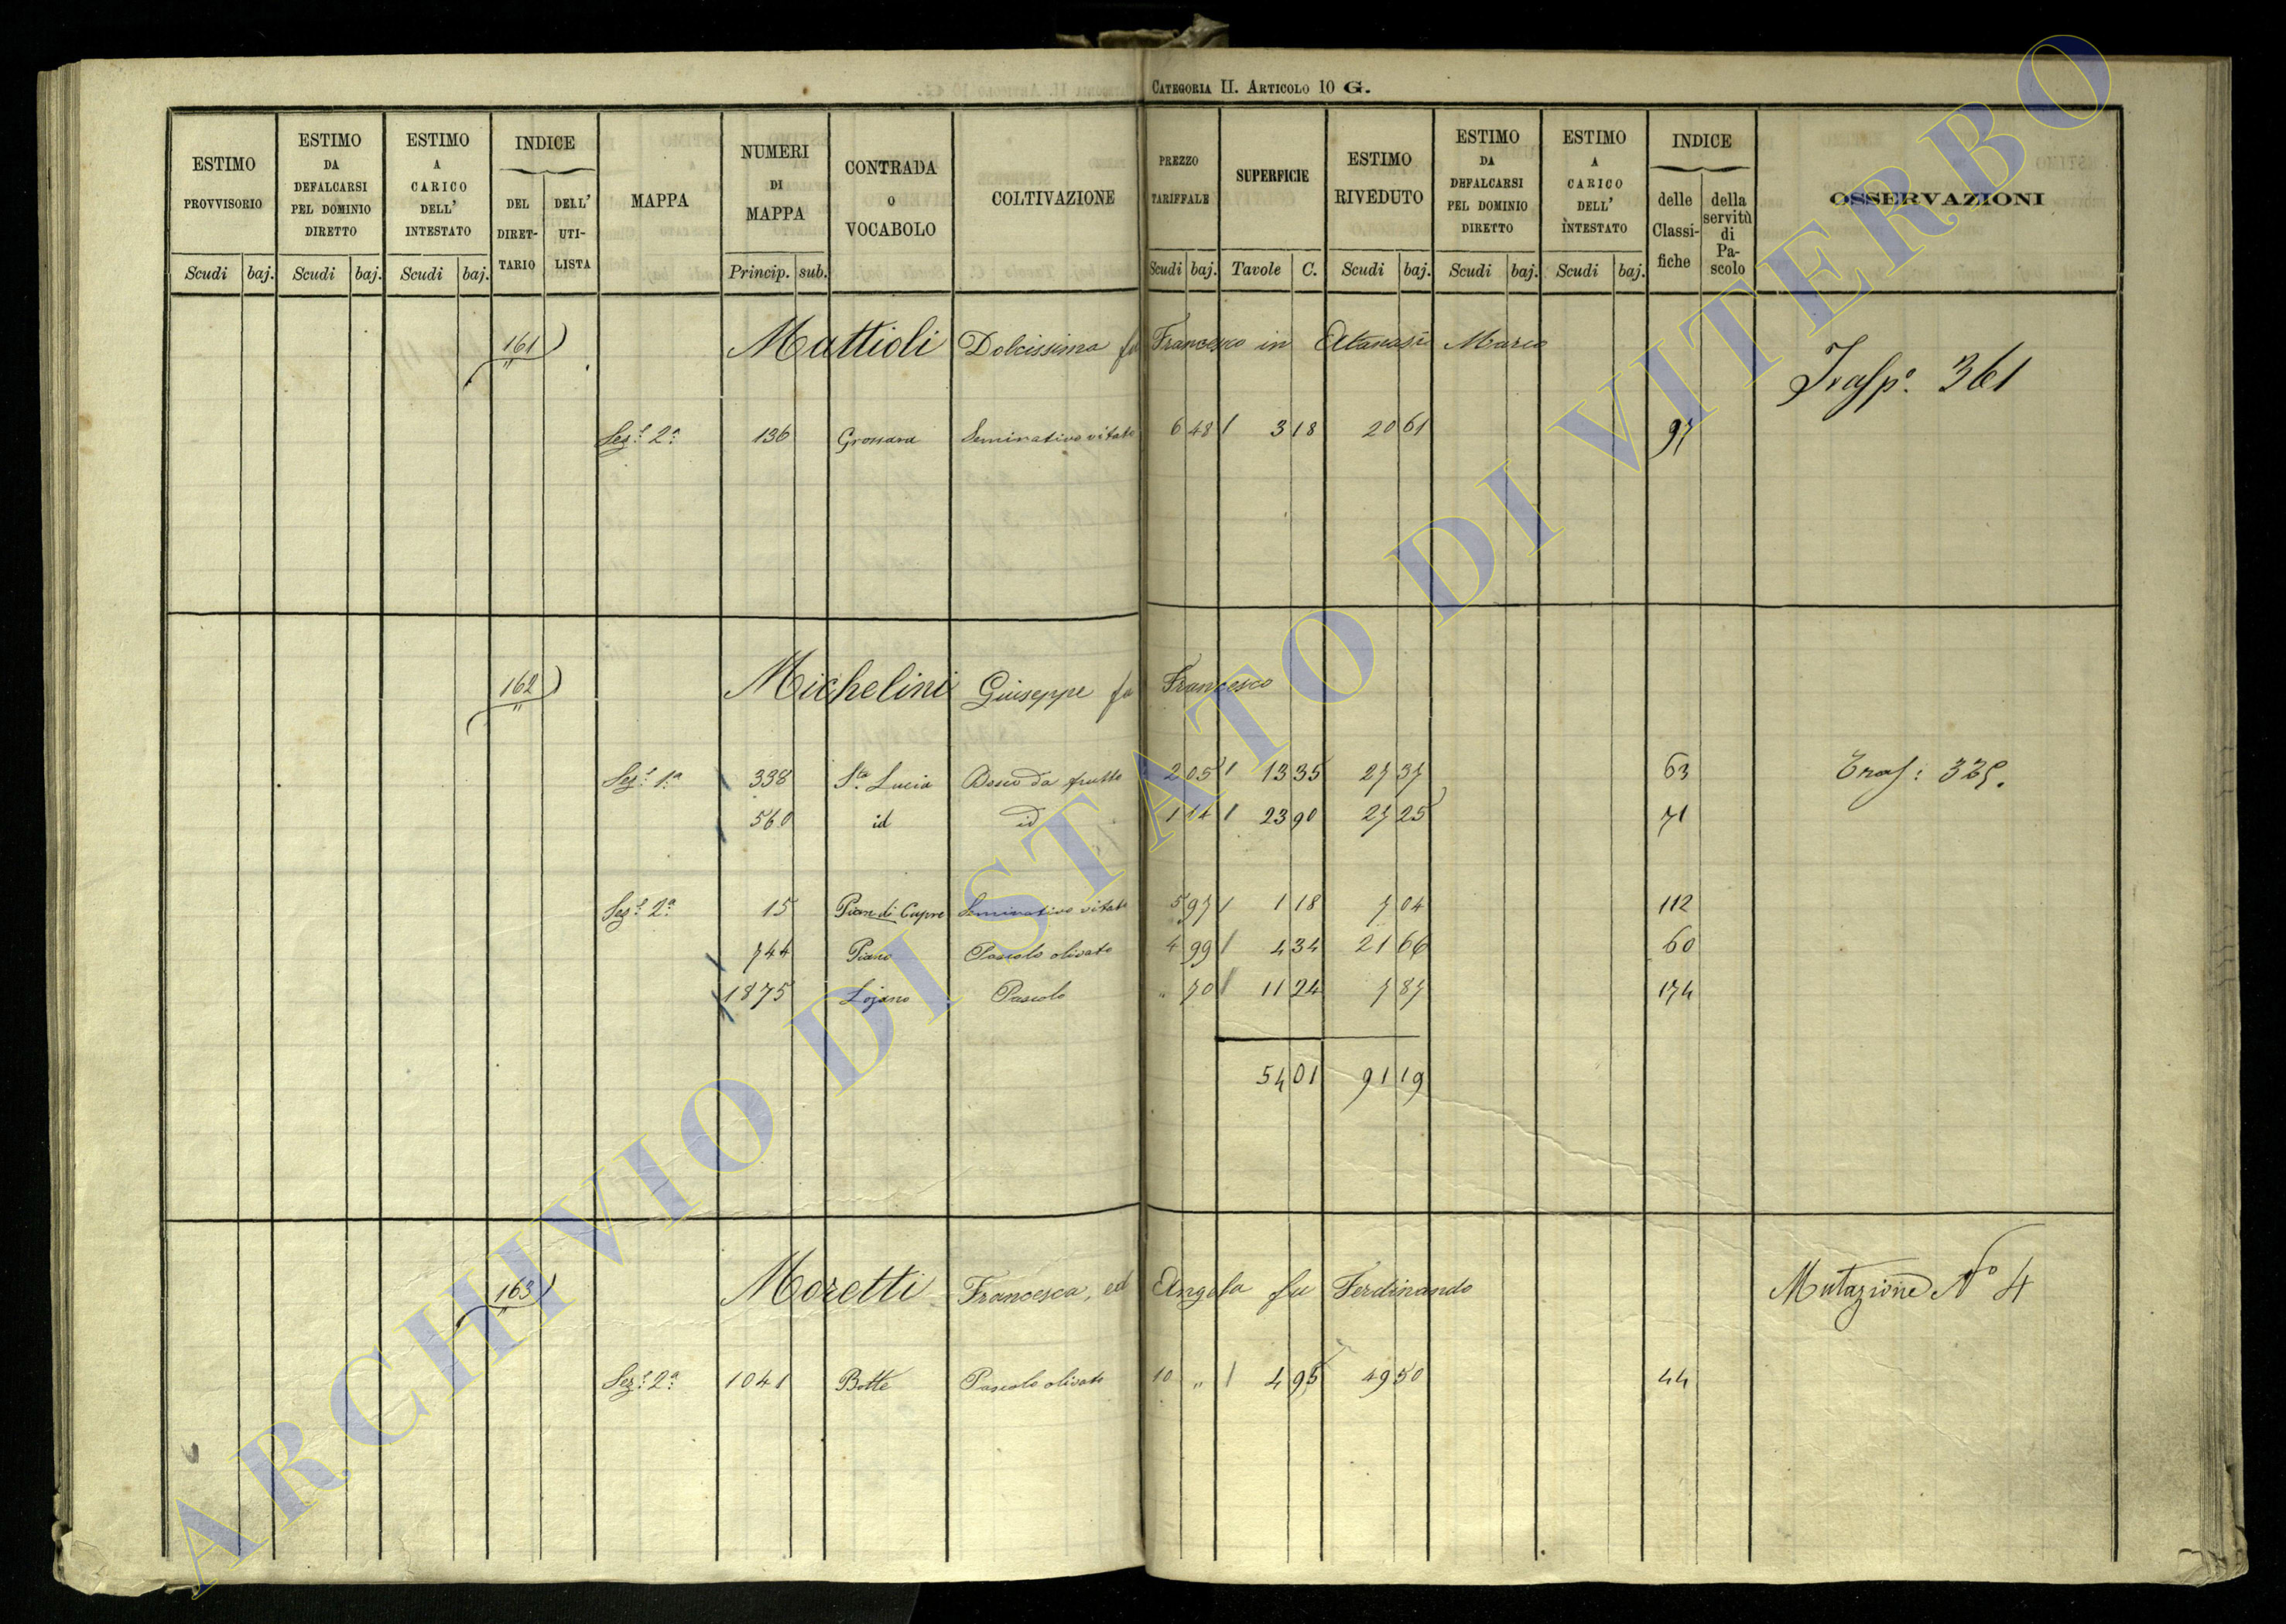 CATEGORIA II. ARTICOLO 10 G.
ESTIMO PROVVISORIO Scudi baj.
ESTIMO DA DEFALCARSI PEL DOMINIO DIRETTO Scudi baj.
ESTIMO A CARICO DELL' INTESTATO Scudi baj.
INDICE DEL DIRET-TARIO DELL' UTI-LISTA
MAPPA
NUMERI DI MAPPA Princip. sub.
CONTRADA O VOCABOLO
COLTIVAZIONE
PREZZO TARIFFALE Scudi baj.
SUPERFICIE Tavole C.
ESTIMO RIVEDUTO Scudi baj.
ESTIMO DA DEFALCARSI PEL DOMINIO DIRETTO Scudi baj.
ESTIMO A CARICO DELL' INTESTATO Scudi baj.
INDICE delle Classi-fiche della servitù di Pa-scolo
OSSERVAZIONI
161) Mattioli Dolcissima fu Francesco in Attanasi Marco
Trasp.o 361
Sez.e 2a 136 Grossara Seminativo vitato 6 48 3 18 20 61 97
162) Michelini Giuseppe fu Francesco
Sez.e 1a 338 S.ta Lucia Bosco da frutto 2 05 13 35 27 37 63 Tras:
560 id id 1 14 23 90 27 25 71
Sez.e 2a 15 Pian di Cupre Seminativo vitato 5 97 1 18 7 04 112
744 Piano Pascolo olivato 4 99 4 34 21 66 60
1875 Lojano Pascolo " 70 11 24 7 87 174
54 01 91 19
163) Moretti Francesca, ed Angela fu Ferdinando Mutazione No 4
Sez.e 2a 1041 Botte Pascolo olivato 10 " 4 95 49 50 44
ARCHIVIO DI STATO DI VITERBO